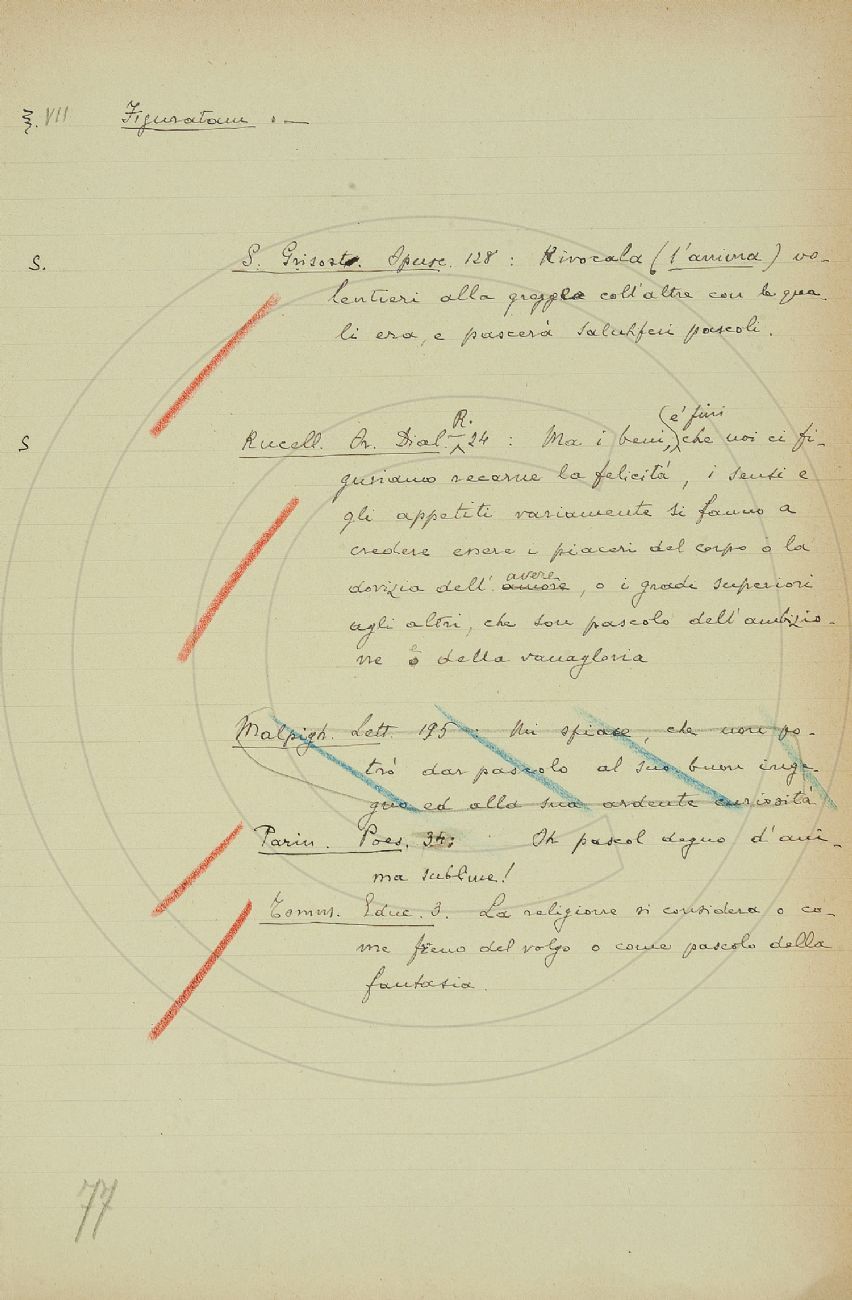 §. VII Figuratam. —
S. S. Grisost. Opusc. 128 : Rivocala (l'anima) vo-
lentieri alla greggia coll'altre con le qua-
li era, e pascerà salutiferi pascoli.
S R. (e' fini
Rucell. Or. Dial. 24 : Ma i beni, che noi ci fi-
guriamo recarne la felicità, i sensi e
gli appetiti variamente si fanno a
credere essere i piaceri del corpo o la
avere
dovizia dell' amore, o i gradi superiori
agli altri, che son pascolo dell'ambizio-
ne e della vanagloria
Malpigh. Lett. 195 : Mi spiace, che non po-
trò dar pascolo al suo buon inge-
gno ed alla sua ardente curiosità
Parin. Poes. 34: Oh pascol degno d'ani-
ma sublime!
Tomms. Educ. 3. La religione si considera o co-
me freno del volgo o come pascolo della
fantasia.
77